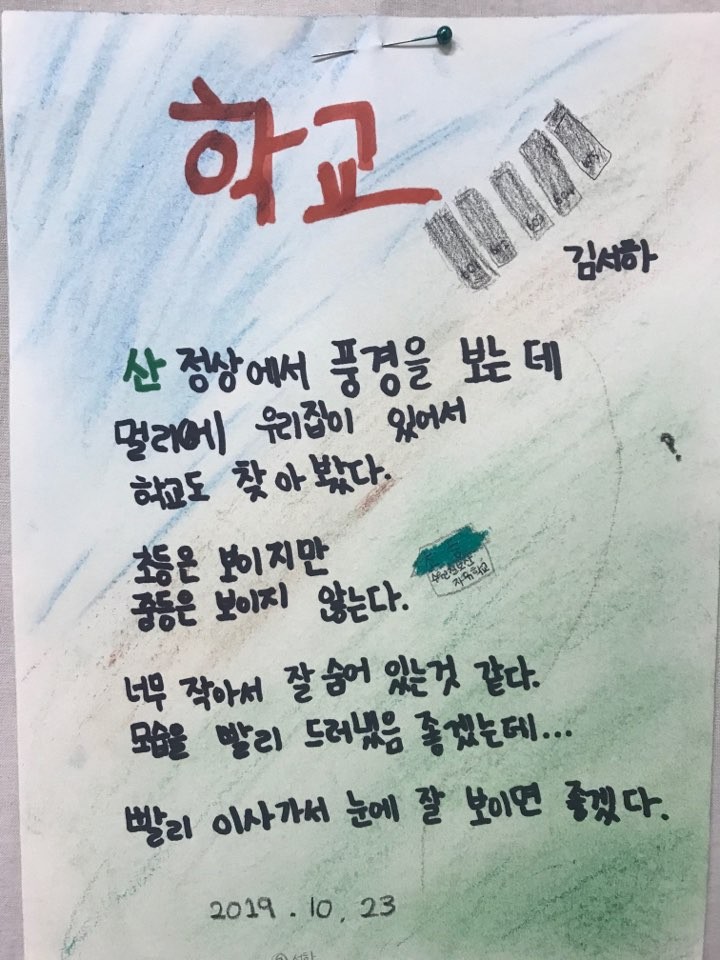 학교
김서하
산 정상에서 풍경을 보는 데
멀리에 우리집이 있어서
학교도 찾아봤다.
초등은 보이지만
중등은 보이지 않는다.
자유학교
너무 작아서 잘 숨어 있는것 같다.
모습을 빨리 드러냈음 좋겠는데...
빨리 이사가서 눈에 잘 보이면 좋겠다.
2019.10.23
서하